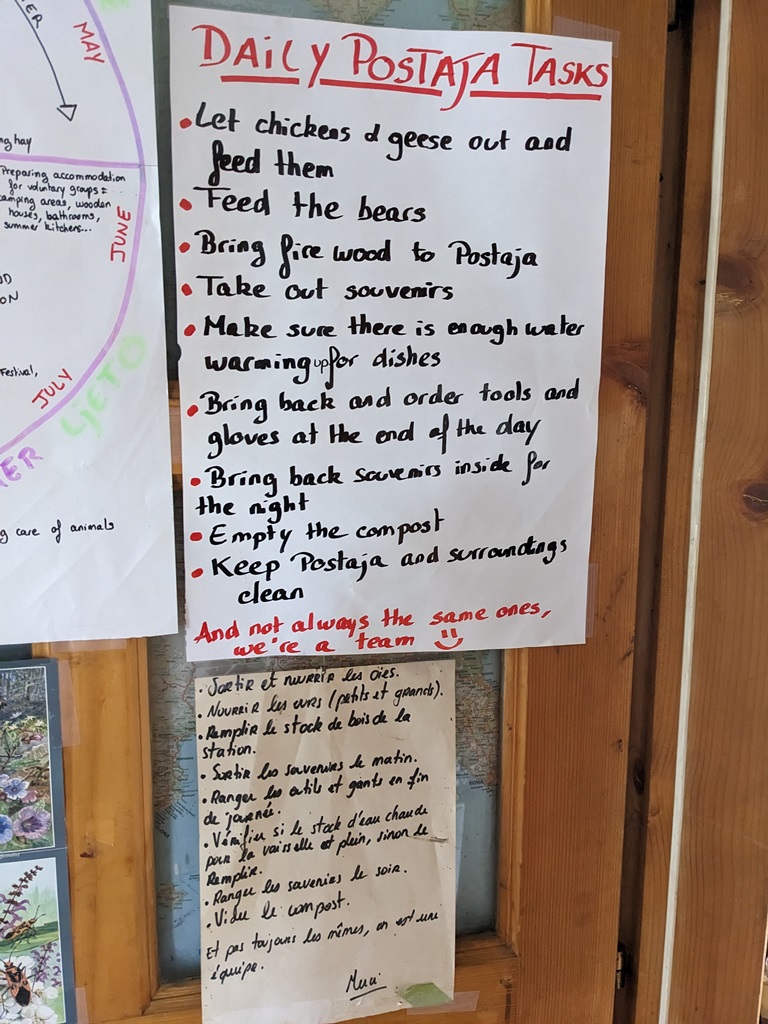 MAY
Preparing accommodation
for voluntary groups =
camping areas, wooden
houses, bathrooms,
summer kitchens...
JUNE
Festival,
JULY
care of animals
DAILY POSTAJA TASKS
• Let chickens & geese out and
feed them
• Feed the bears
• Bring fire wood to Postaja
• Take out souvenirs
• Make sure there is enough water
warming up for dishes
• Bring back and order tools and
gloves at the end of the day
• Bring back souvenirs inside for
the night
• Empty the compost
• Keep Postaja and surroundings
clean
And not always the same ones,
we're a team
• Sortir et nourrir les oies.
• Nourrir les ours (petits et grands).
• Remplir le stock de bois de la
station.
• Sortir les souvenirs le matin.
• Ranger les outils et gants en fin
de journée.
• Vérifier si le stock d'eau chaude
pour la vaisselle est plein, sinon le
Remplir.
• Ranger les souvenirs le soir.
• Vider le compost.
Et pas toujours les mêmes, on est une
équipe.
Merci